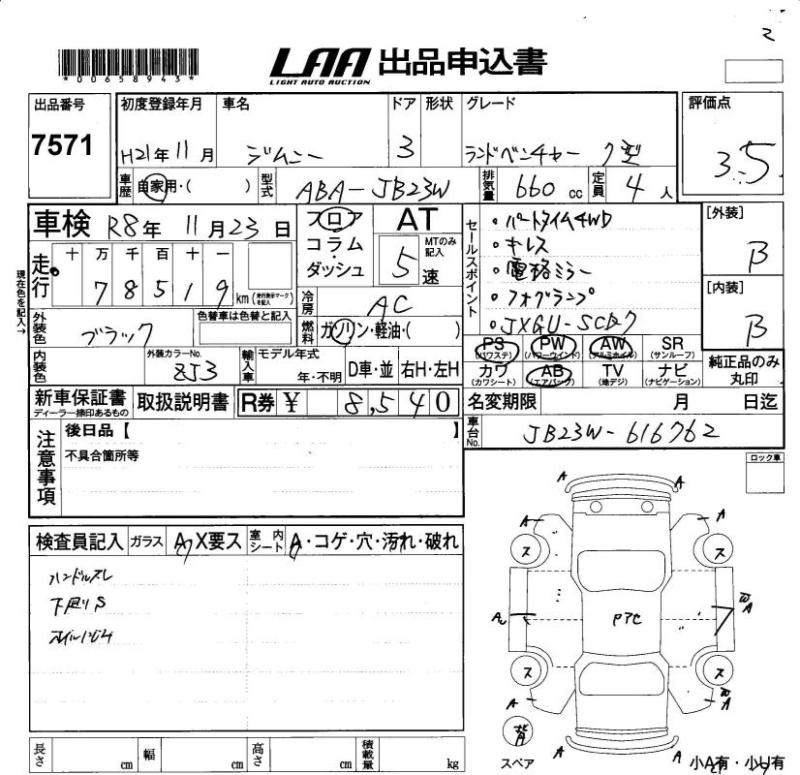 2
*00658943*
LAA 出品申込書
LIGHT AUTO AUCTION
出品番号 7571
初度登録年月 H21年11月
車名 ジムニー
ドア 3
形状
グレード ランドベンチャー 7型
評価点 3.5
車歴 自家用・( )
型式 ABA-JB23W
排気量 660 cc
定員 4人
車検 R8年 11月23日
フロア
コラム・
ダッシュ
AT
MTのみ記入
5速
セールスポイント
・パートタイム4WD
・キレス
・電格ミラー
・フォグランプ
[外装] B
[内装] B
現在色を記入→
走行 十 万 千 百 十 一
78519 km
(走行表示マークを記入)
冷房 AC
燃料 ガソリン・軽油・( )
外装色 ブラック
色替車は色替と記入
内装色
外装カラーNo. ZJ3
輸入車
モデル年式
年・不明
D車・並
右H・左H
PS (パワステ) PW (パワーウインド) AW (アルミホイル) SR (サンルーフ)
カワ (カワシート) AB (エアバック) TV (地デジ) ナビ (ナビゲーション)
純正品のみ丸印
新車保証書
ディーラー捺印あるもの
取扱説明書
R券 ¥ 8,540
名変期限 月 日迄
車台No. JB23W-616762
注意事項
後日品【 】
不具合箇所等
ロック車
検査員記入
ガラス A X要ス
室内シート A・コゲ・穴・汚れ・破れ
ハンドルスレ
下廻りS
A
A
A
ス
ス
A
PTC
W
A
ス
ス
A
W
A
背
スペア
A
A
小A有・小U有
長さ cm
幅 cm
高さ cm
積載量 kg